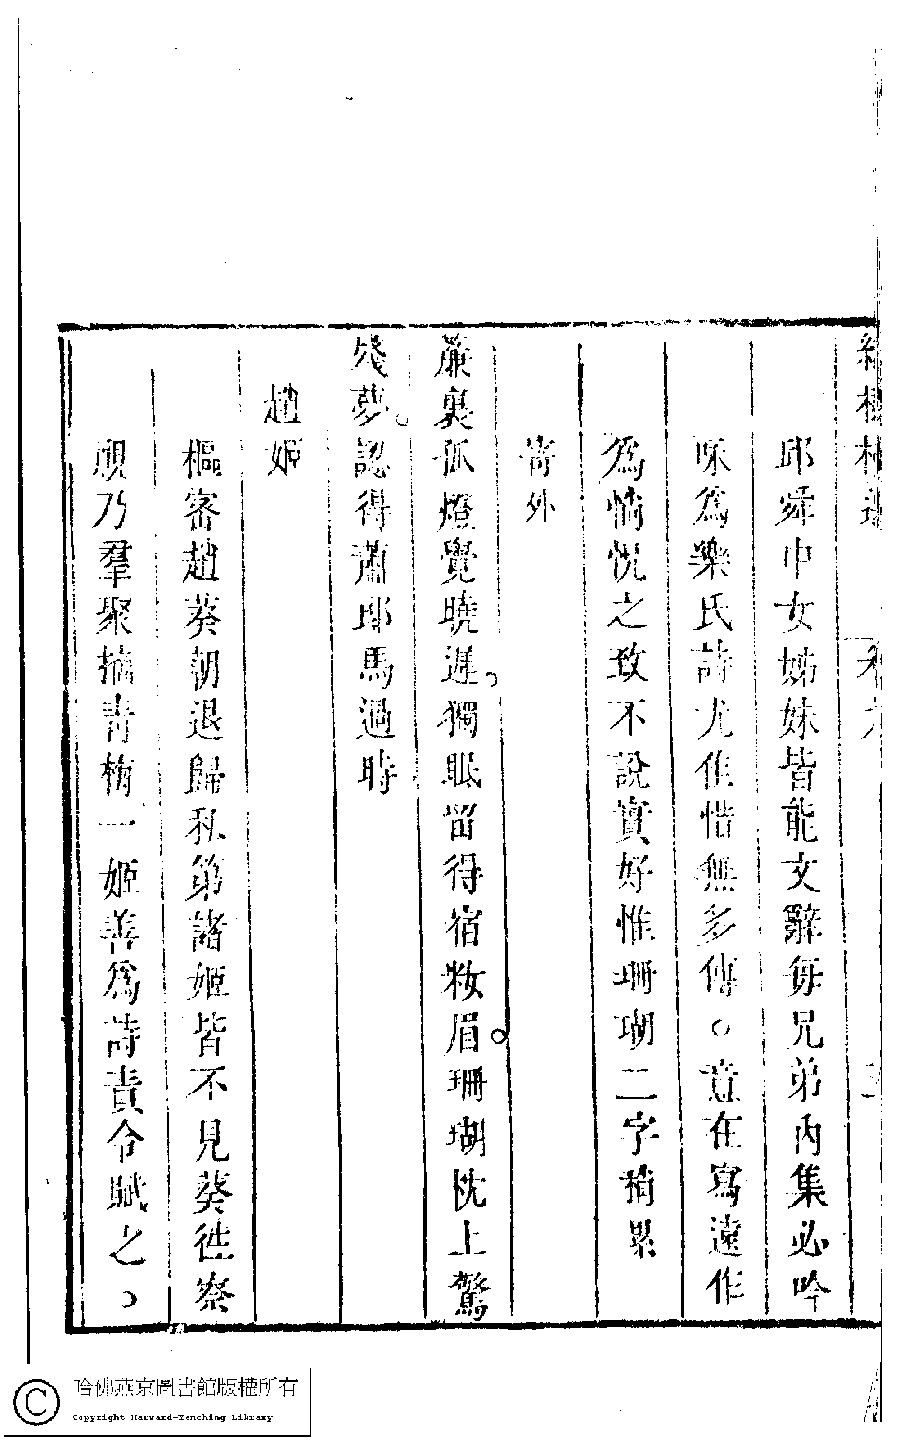 邱舜中女姊妹皆能文辭每兄弟內集必吟
咏爲樂氏詩尤佳惜無多傳○意在寫遠作
爲惝怳之致不說實好惟珊瑚二字稍累
寄外
簾裏孤燈覺曉遲。獨眠留得宿妝眉。珊瑚枕上驚
殘夢。認得蕭郎馬過時
趙姬
樞密趙葵朝退歸私第諸姬皆不見葵徃察
覘乃羣聚摘青梅一姬善爲詩責令賦之○
哈佛燕京圖書館版權所有
Copyright Harvard-Yenching Library